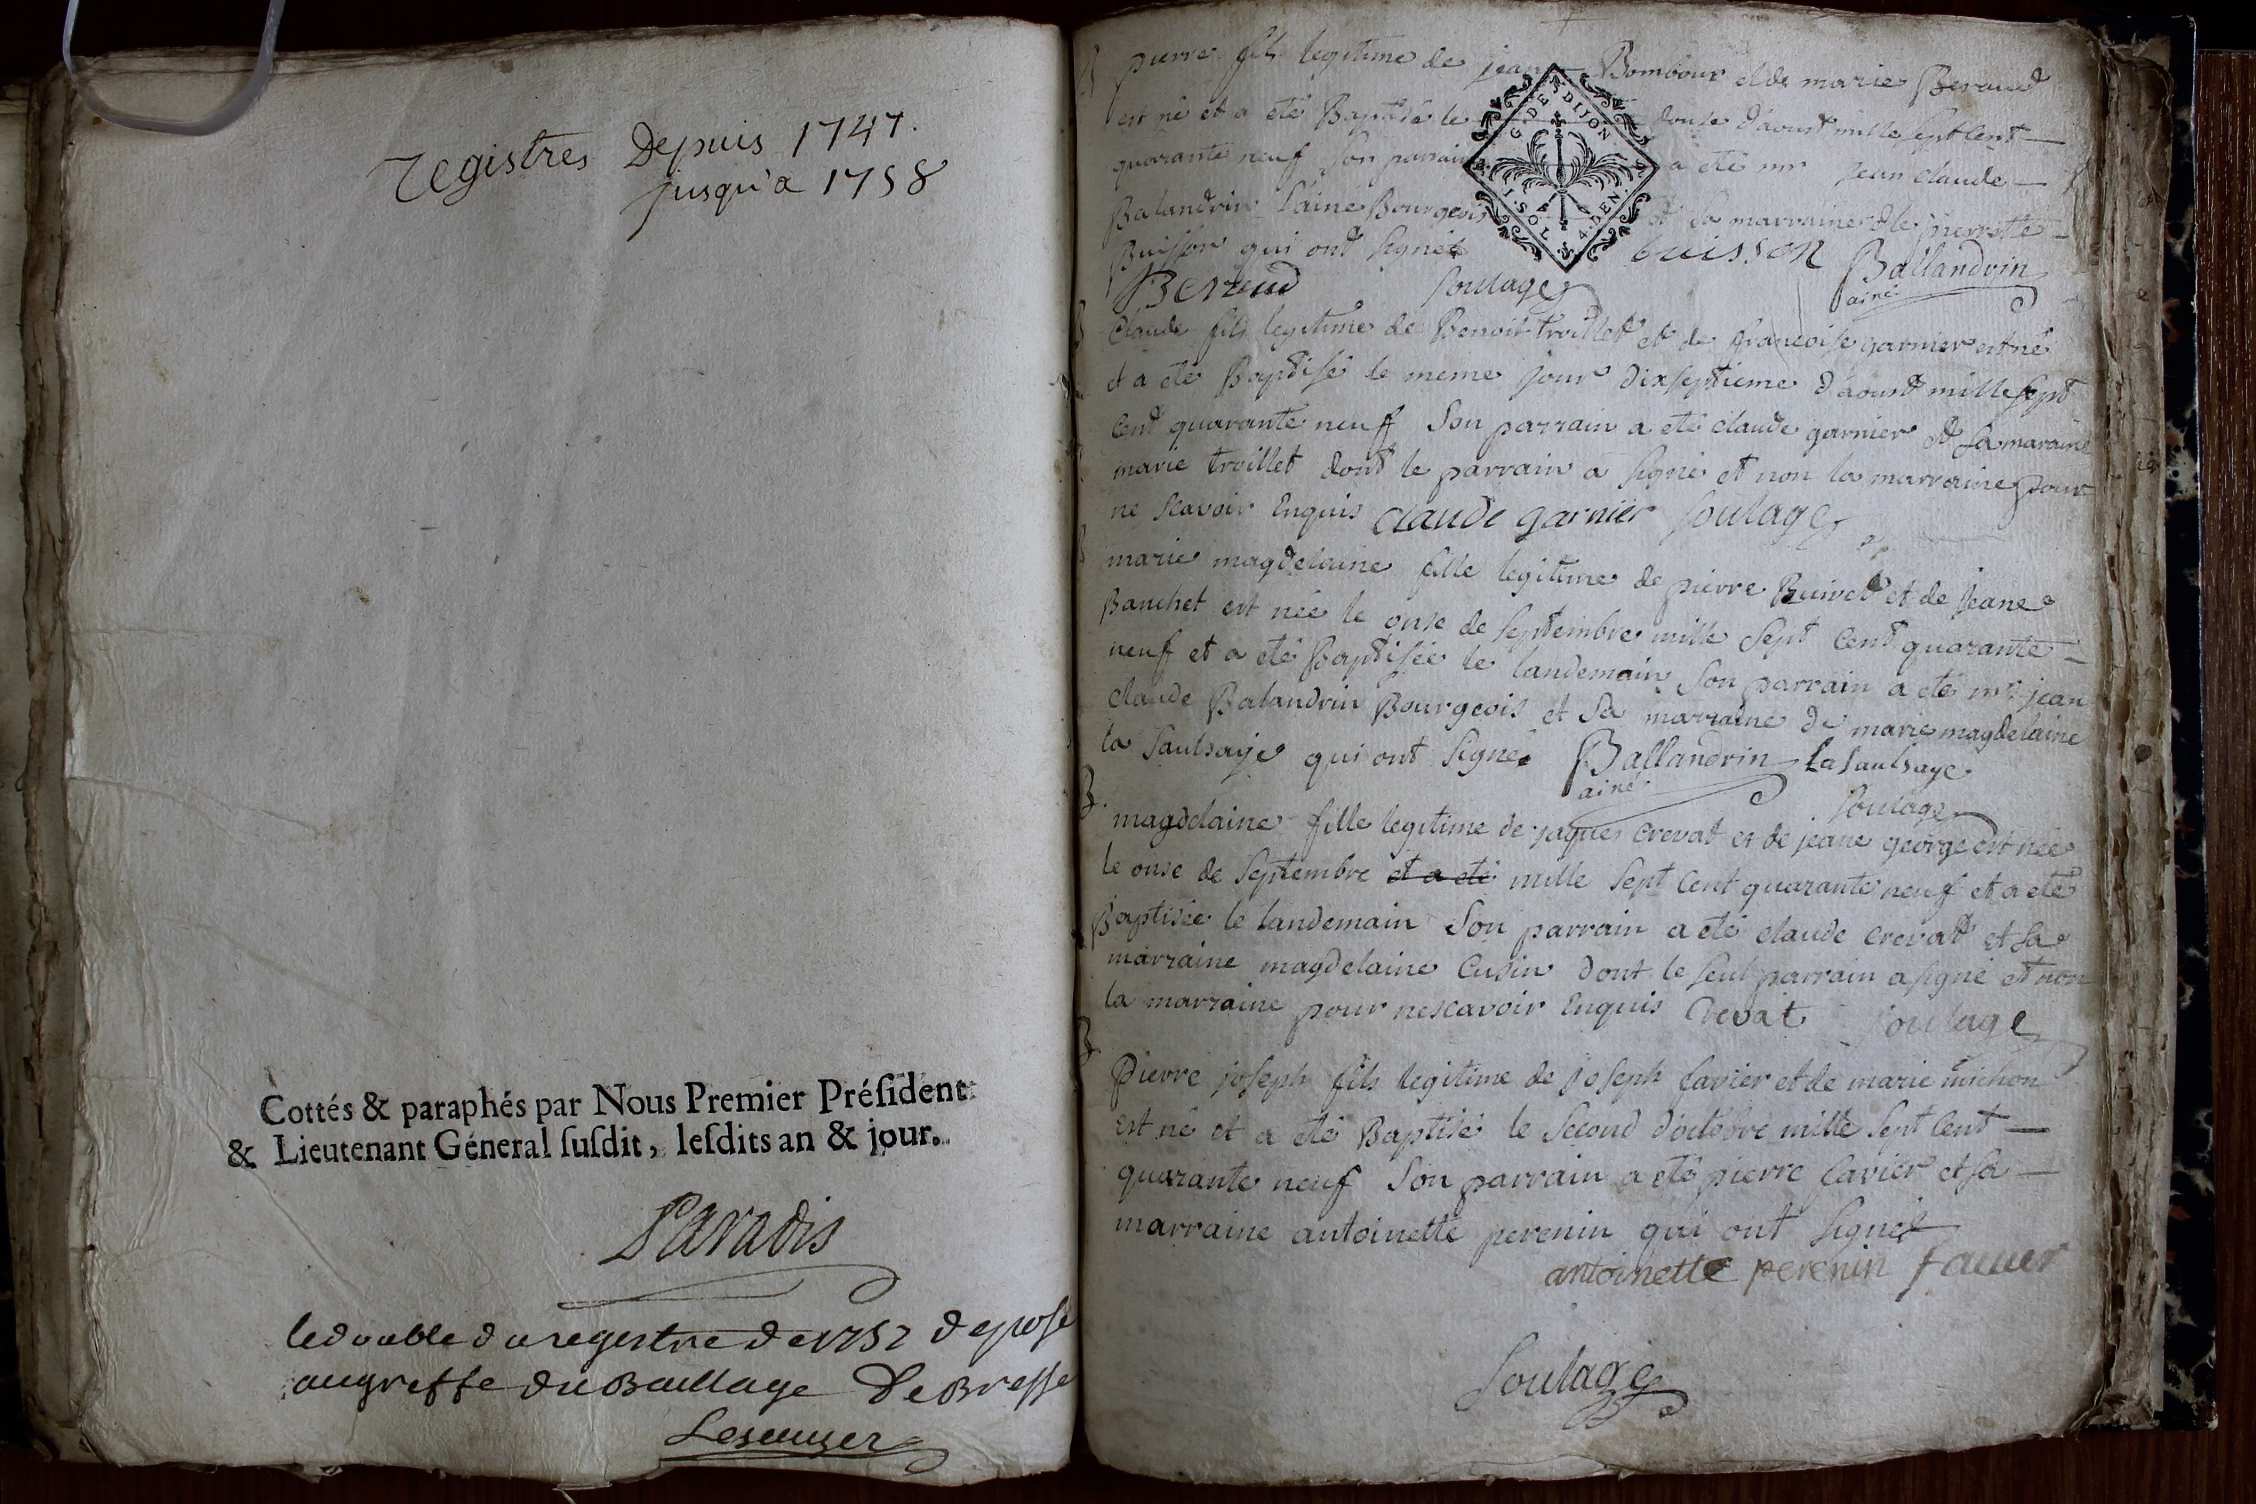 registres Depuis 1747.
jusqu'a 1758
Cottés & paraphés par Nous Premier Préſident
& Lieutenant Géneral ſuſdit, leſdits an & jour.
Paradis
le double du registre de 1757 depose
au greffe du Baillage De Bresse
B pierre fils legitime de jean Bombour et de marie Beraud
est né et a eté Baptisé le douse d'aoust mille sept cent
quarante neuf son parrain a eté mr jean claude
Balandrin L'ainé Bourgeois et sa marraine dlle pierrette
Buisson qui ont signés buisson Ballandrin
ainé
Beraud Soulage
G. DE DIJON
I. SOL 4. DEN.
Claude fils legitime de Benoit troillet et de francoise garnier est né
et a eté Baptisé le meme jour dixseptieme d'aoust mille sept
cent quarante neuf son parrain a eté claude garnier et sa maraine
marie troillet dont le parrain a signé et non la marraine pour
ne scavoir enquis claude garnier Soulage
marie magdelaine fille legitime de pierre et de jeane
Banchet est née le onse de septembre mille sept cent quarante
neuf et a eté Baptisée le landemain son parrain a eté mr jean
claude Balandrin Bourgeois et sa marraine de marie magdelaine
la Saulsaye qui ont signé Ballandrin la Saulsaye
ainé Soulage
B. magdelaine fille legitime de jaques Crevat et de jeane george est née
le onse de septembre et a eté mille sept cent quarante neuf et a eté
Baptisée le landemain son parrain a eté claude crevat et sa
marraine magdelaine Cusin dont le seul parrain a signé et non
la marraine pour ne scavoir enquis Crevat Soulage
B Pierre joseph fils legitime de joseph favier et de marie michon
est né et a eté Baptisé le second d'octobre mille sept cent
quarante neuf son parrain a eté pierre favier et sa
marraine antoinette perenin qui ont signés
antoinette perenin favier
Soulage